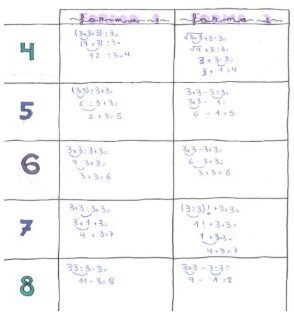 forma 1 forma 2
4
(3×3+3):3=
(9+3):3=
12 :3=4
√3×3+3:3=
√9+3:3=
3+3:3=
3+1=4
5
(3×3):3+3=
6 :3+3=
2+3=5
3+3-3:3=
3+3- 1=
6 - 1=5
6
3×3:3+3=
9:3+3=
3+3=6
3+3-3+3=
6-3+3=
3+3=6
7
3+3:3+3=
3+1+3=
4+3=7
(3:3)!+3+3=
1!+3+3=
1+3+3=
4+3=7
8
33:3-3=
11-3=8
3×3-3:3=
9 - 1=8